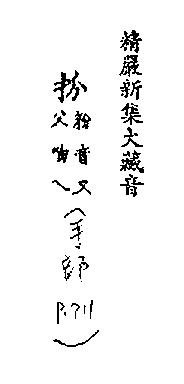 精嚴新集大藏音
扮
粉音又
父吻乀
(手部
P.711)